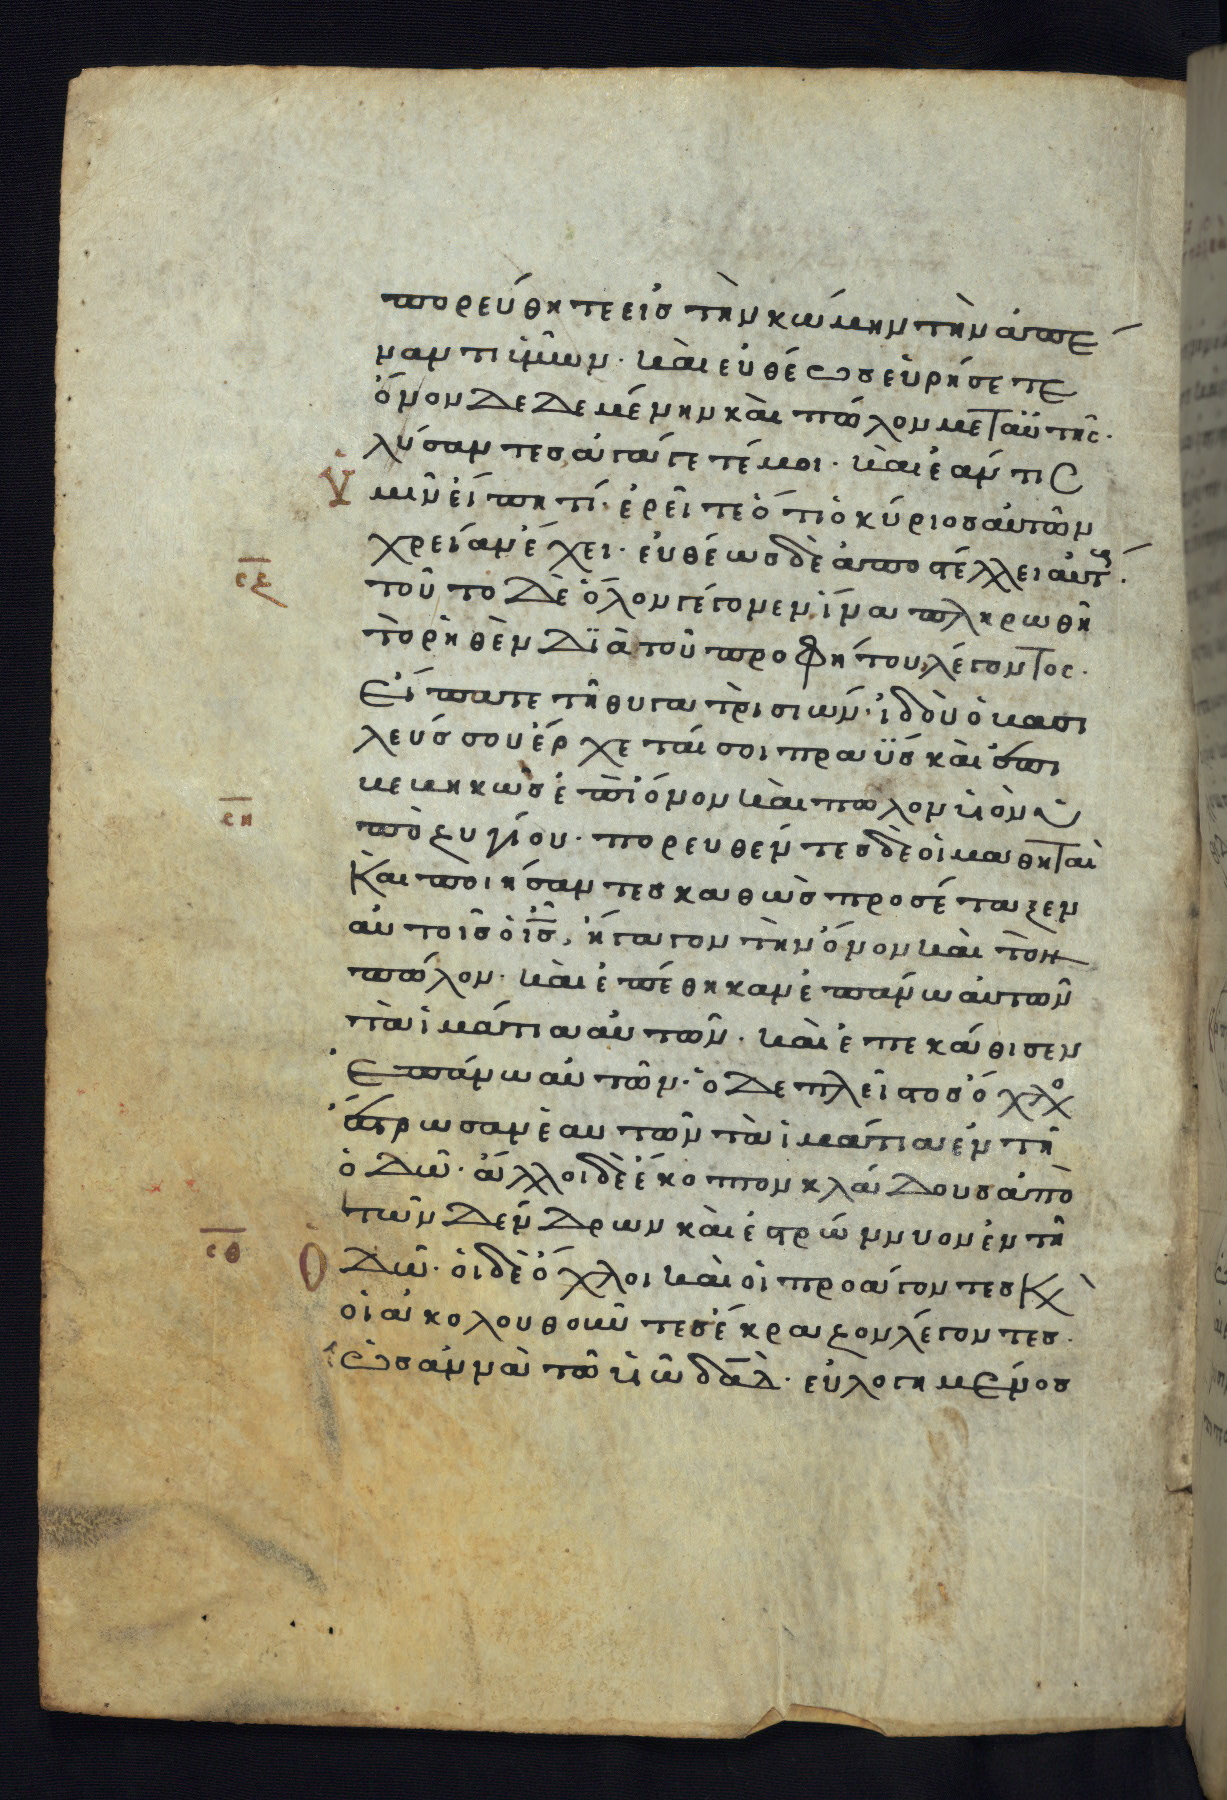 πορεύθητε εἰσ τὴν κώμην τὴν ἀπέ
ναντι ὑμῶν· καὶ εὐθέωσ εὑρήσετε
ὄνον δεδεμένην καὶ πῶλον μετ αὐτῆς·
λύσαντεσ ἀγάγετέ μοι· καὶ ἐάν τισ
ὑμῖν εἴπη τί· ἐρεῖτε ὅτι ὁ κύριοσ αὐτῶν
χρείαν ἔχει· εὐθέωσ δὲ ἀποστέλλει αὐτούσ·
σζ
τοῦτο δὲ ὅλον γέγονεν ἵνα πληρωθῆ
τὸ ρηθὲν διὰ τοῦ προφήτου λέγοντος·
εἴπατε τῆ θυγατρὶ σιών· ἰδοὺ ὁ βασι
λεύσ σου ἔρχεταί σοι πραῢσ καὶ ἐπι
βεβηκὼσ ἐπὶ ὄνον καὶ πῶλον υἱὸν ὑ
ση
ποζυγίου· πορευθέντεσ δὲ οἱ μαθηταὶ
καὶ ποιήσαντεσ καθὼσ προσέταξεν
αὐτοῖσ ὁ ισ, ἤγαγον τὴν ὄνον καὶ τὸν
πῶλον· καὶ ἐπέθηκαν ἐπάνω αὐτῶν
τὰ ἱμάτια αὐτῶν· καὶ ἐπεκάθισεν
ἐπάνω αὐτῶν· ὁ δὲ πλεῖστοσ ὄχλο
ἔστρωσαν ἑαυτῶν τὰ ἱμάτια ἐν τῆ
ὁδῶ· ἄλλοι δὲ ἔκοπτον κλάδουσ ἀπὸ
τῶν δένδρων καὶ ἐστρώννυον ἐν τῆ
σθ
ὁδῶ· οἱ δὲ ὄχλοι καὶ οἱ προάγοντεσ κ
οἱ ἀκολουθοῦντεσ ἔκραζον λέγοντεσ·
ὡσαννὰ τῶ υἱῶ δαδ· εὐλογημένοσ